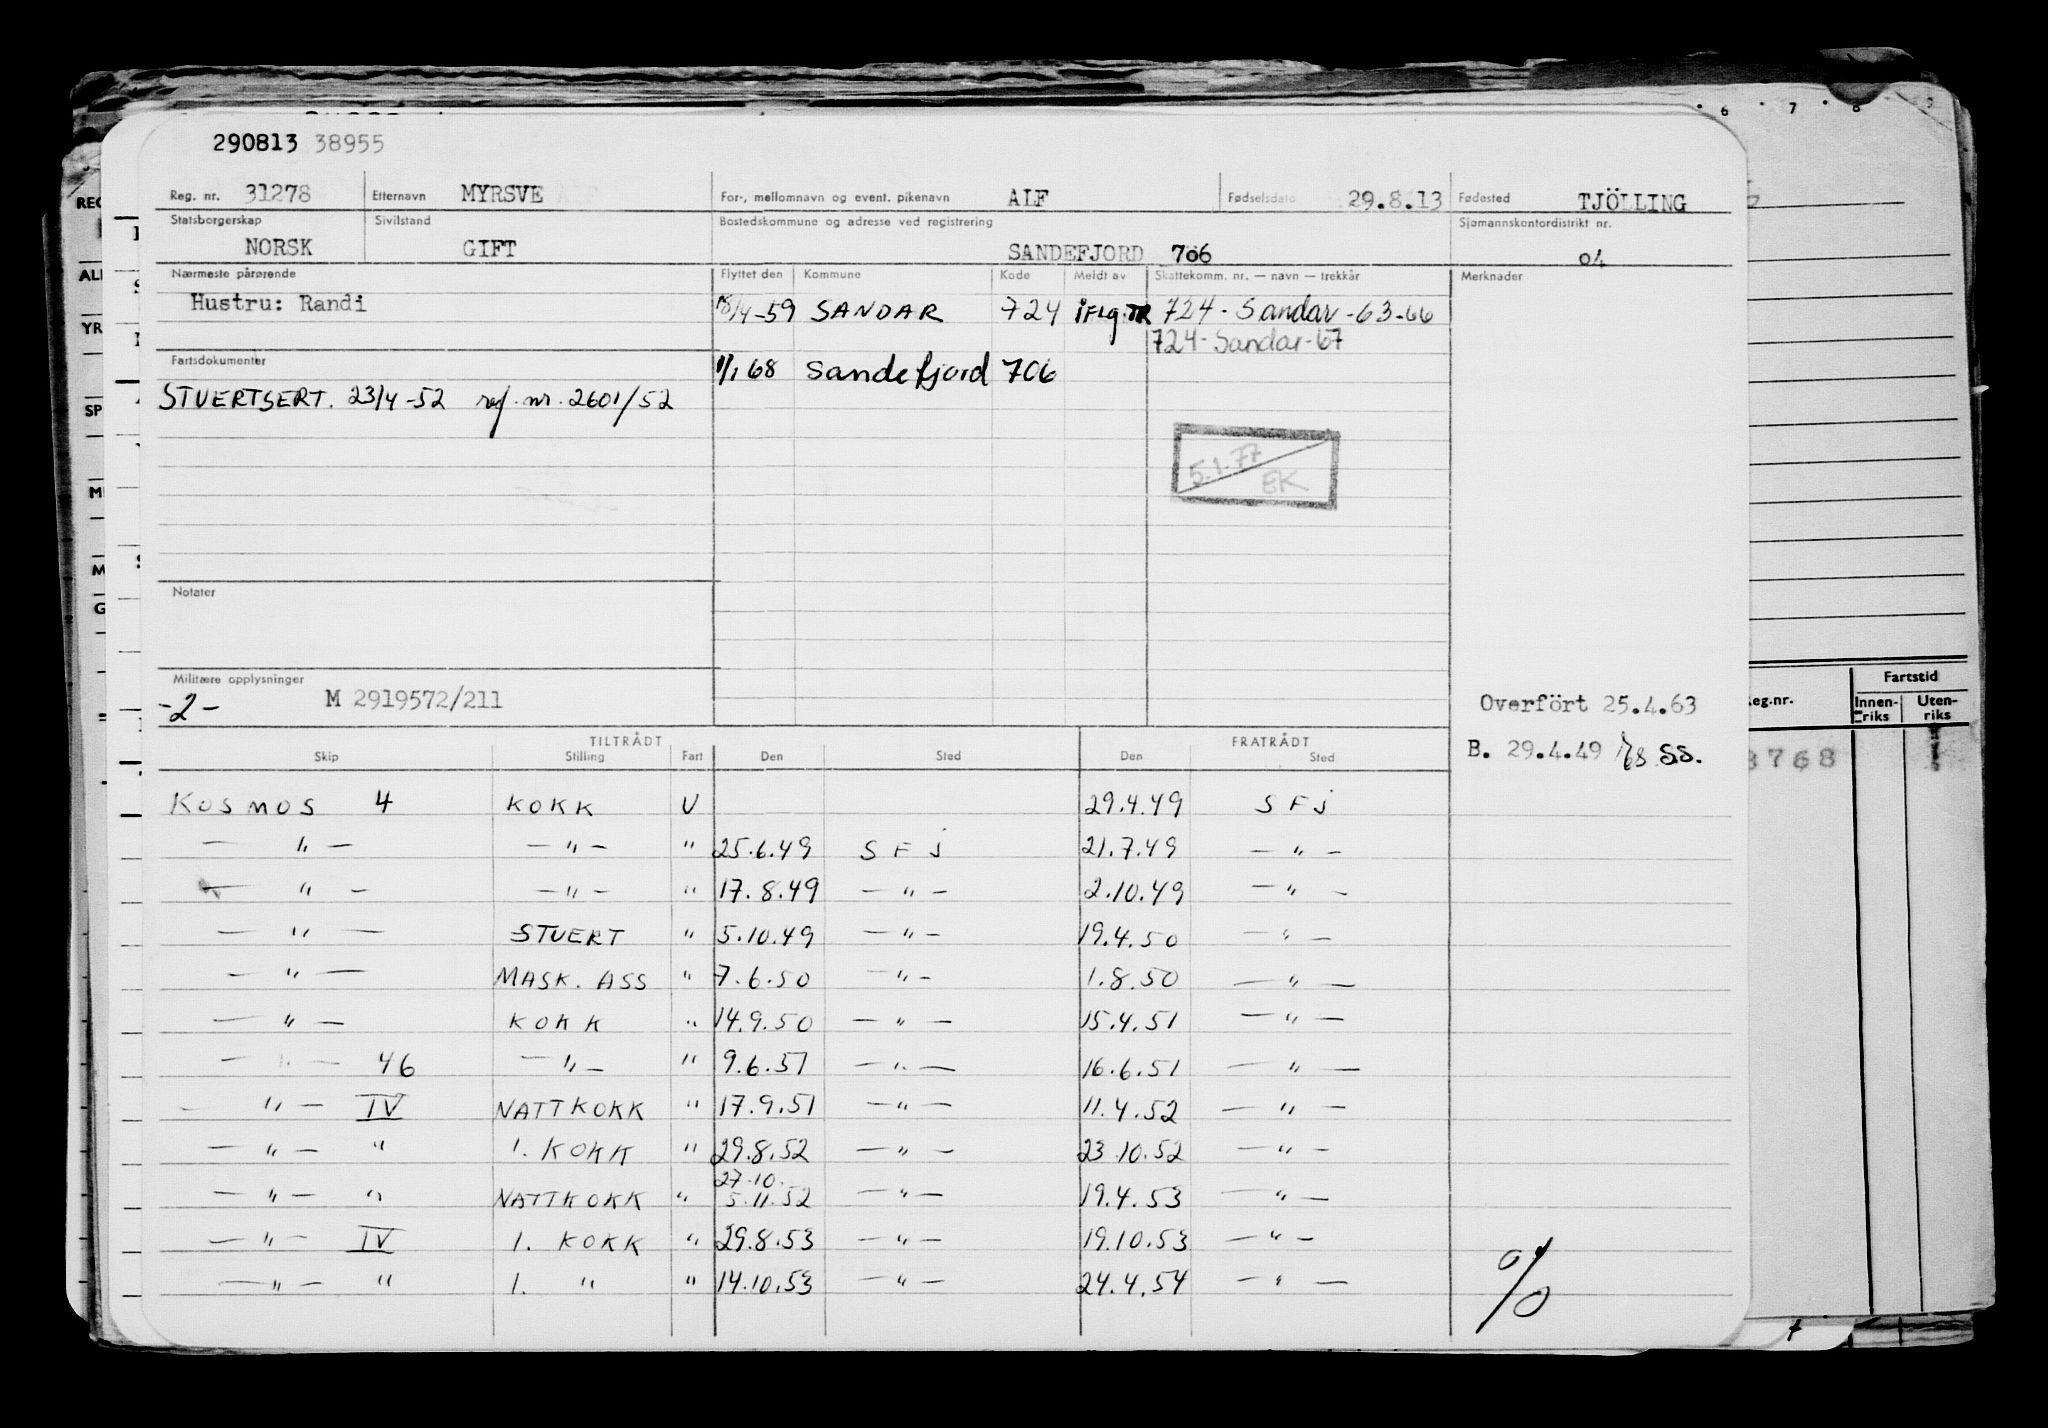 290813 38955
Reg. nr. 31278 Etternavn MYRSVE For-, mellomnavn og event. pikenavn ALF Fødselsdato 29.8.13 Fødested TJÖLLING
Statsborgerskap NORSK Sivilstand GIFT Bostedskommune og adresse ved registrering SANDEFJORD 706 Sjømannskontordistrikt nr. 04
Nærmeste pårørende Flyttet den Kommune Kode Meldt av Skattekomm. nr. — navn — trekkår Merknader
Hustru: Randi 18/4-59 SANDAR 724 iflg. TR 724 - Sandar - 63-66
724 - Sandar - 67
Fartsdokumenter 1/1 68 Sandefjord 706
STUERTSERT. 23/4-52 ref. nr. 2601/52
5.1.77
EK
Notater
Militære opplysninger
-2- M 2919572/211
Overfört 25.4.63
B. 29.4.49 SS.
TILTRÅDT FRATRÅDT
Skip Stilling Fart Den Sted Den Sted
KOSMOS 4 KOKK U 29.4.49 S Fj
— " — — " — " 25.6.49 S F j 21.7.49 — " —
— " — — " — " 17.8.49 — " — 2.10.49 — " —
— " — STUERT " 5.10.49 — " — 19.4.50 — " —
— " — MASK. ASS " 7.6.50 — " — 1.8.50 — " —
— " — KOKK " 14.9.50 — " — 15.4.51 — " —
— " — 46 — " — " 9.6.51 — " — 16.6.51 — " —
— " — IV NATTKOKK " 17.9.51 — " — 11.4.52 — " —
— " — " 1. KOKK " 29.8.52 — " — 23.10.52 — " —
27.10.
— " — " NATTKOKK " 5.11.52 — " — 19.4.53 — " —
— " — IV 1. KOKK " 29.8.53 — " — 19.10.53 — " —
— " — " 1. " " 14.10.53 — " — 24.4.54 — " —
%
6 7 8 9
Fartstid
eg.nr. Innen-riks Uten-riks
3768